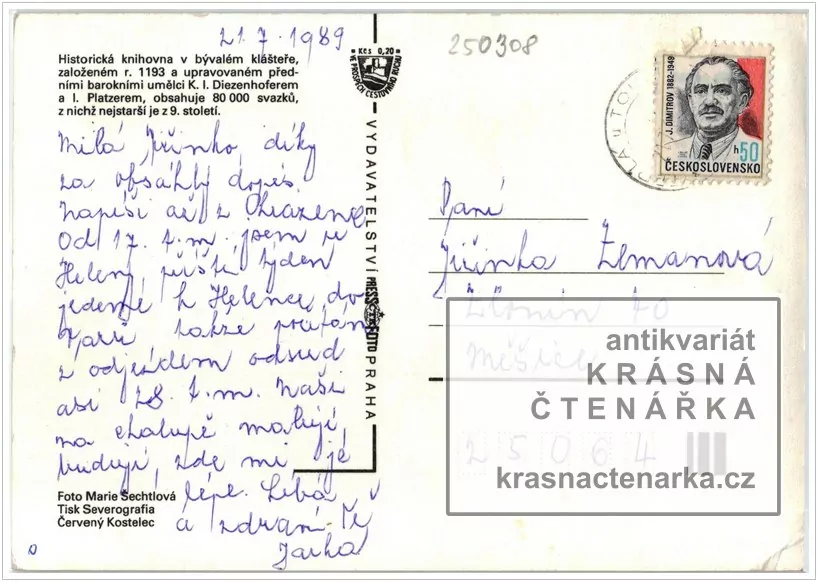 21.7.1989
250308
Historická knihovna v bývalém klášteře,
založeném r. 1193 a upravovaném před-
ními barokními umělci K. I. Diezenhoferem
a I. Platzerem, obsahuje 80 000 svazků,
z nichž nejstarší je z 9. století.
Kčs 0,20
VE PROSPĚCH CESTOVNÍHO RUCHU
Milá Jiřinko, díky
za obsáhlý dopis.
Napíši až z
Od 17. t.m. jsem u
Heleny, příští týden
jedeme k Helence do
takže počítám
z odjezdem odsud
asi 28. t.m. Naši
na chalupě malují,
budují, zde mi je
lépe. Líbá
a zdraví Tě
Jarka
VYDAVATELSTVÍ PRESSFOTO PRAHA
Foto Marie Šechtlová
Tisk Severografia
Červený Kostelec
J. DIMITROV 1882-1949
h 50
ČESKOSLOVENSKO
Paní
Jiřinka Zemanová
Zlonín 70
Měšice
25064
antikvariát
KRÁSNÁ
ČTENÁŘKA
krasnactenarka.cz